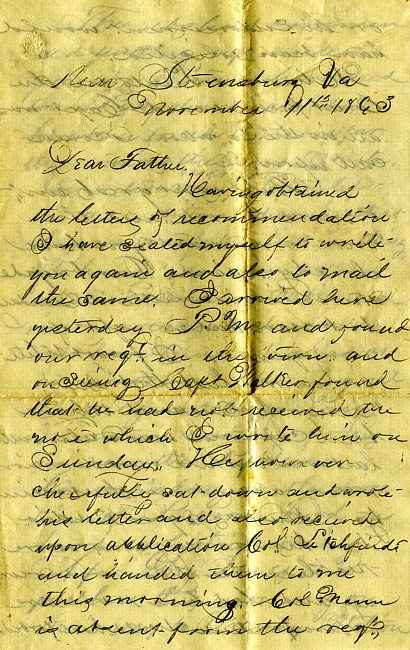 Near Stevensburg Va
November 11th 1863
Dear Father,
Having obtained
the letters of recommendation
I have seated myself to write
you again and also to mail
the same. I arrived here
yesterday P.M. and found
our regt. in the town and
on seeing Capt Walker found
that he had not received the
note which I wrote him on
Sunday. He, however
cheerfully sat down and wrote
his letter and also received
upon application Col. Litchfields
and handed them to me
this morning. Col Mann
is absent from the regt.